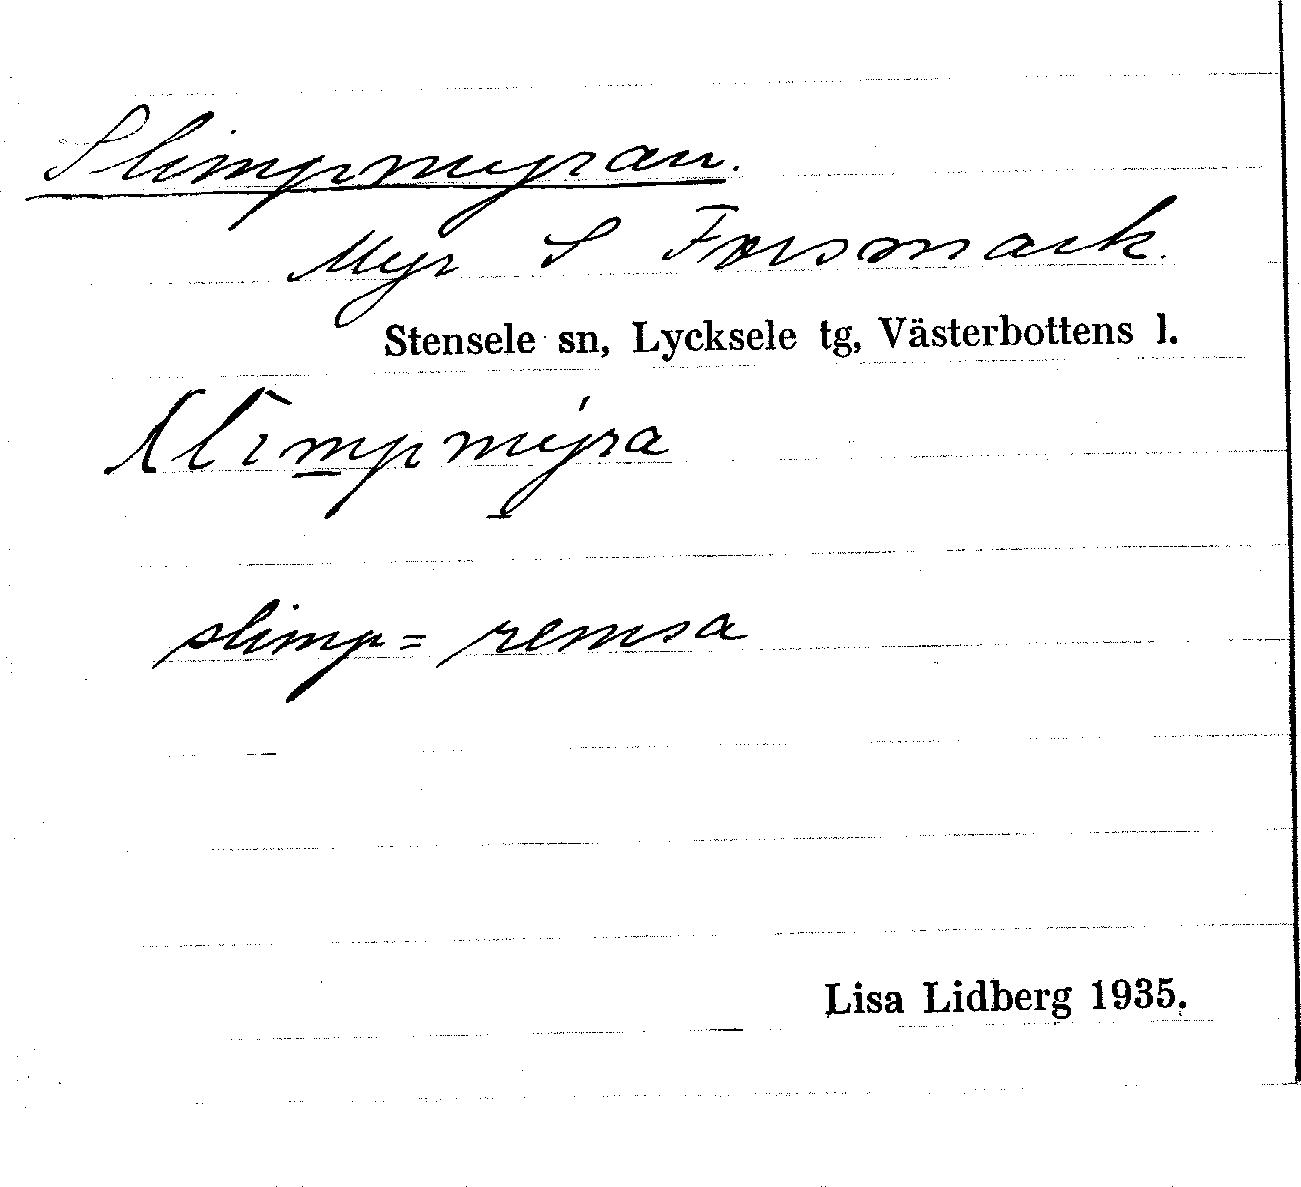 Slimpmyran.
Myr S Forsmark.
Stensele sn, Lycksele tg, Västerbottens l.
slimpmýra
slimp = remsa
Lisa Lidberg 1935.